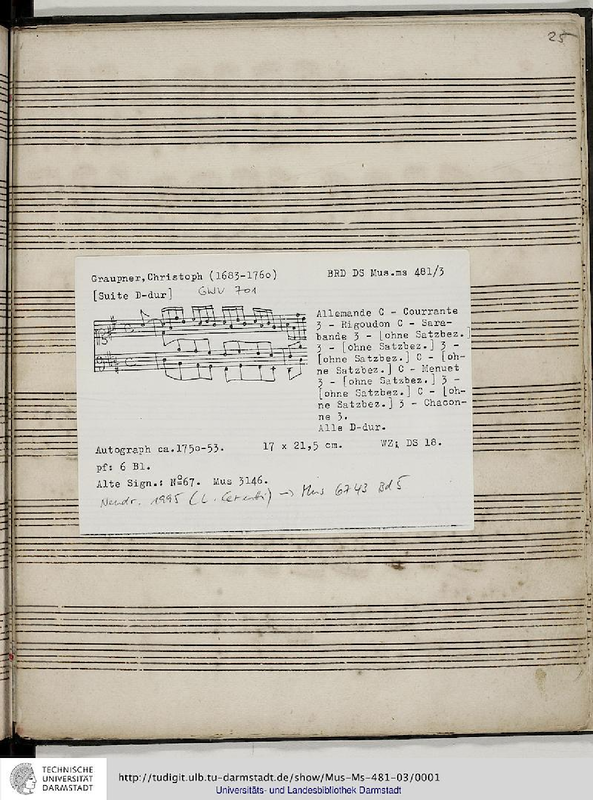 25
Graupner,Christoph (1683-1760)
BRD DS Mus.ms 481/3
[Suite D-dur]
GWV 701
Allemande C - Courrante
3 - Rigoudon C - Sara-
bande 3 - [ohne Satzbez.]
3 - [ohne Satzbez.] 3 -
[ohne Satzbez.] C - [oh-
ne Satzbez.] C - Menuet
3 - [ohne Satzbez.] 3 -
[ohne Satzbez.] C - [oh-
ne Satzbez.] 3 - Chacon-
ne 3.
Alle D-dur.
Autograph ca.1750-53.
17 x 21,5 cm.
WZ: DS 18.
pf: 6 Bl.
Alte Sign.: Nº67. Mus 3146.
Neudr. 1995 (L. Cerutti) → Mus 6743 Bd 5
TECHNISCHE
UNIVERSITÄT
DARMSTADT
http://tudigit.ulb.tu-darmstadt.de/show/Mus-Ms-481-03/0001
Universitäts- und Landesbibliothek Darmstadt